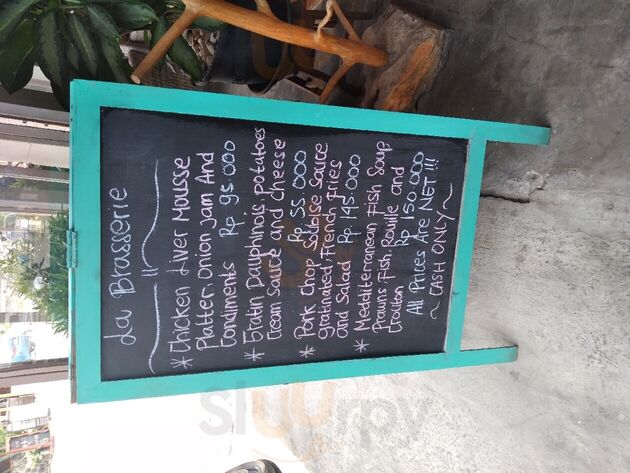 La Brasserie
* Chicken Liver Mousse
Platter. Onion Jam And
Condiments Rp 95.000
* Gratin Dauphinois, potatoes
Cream Sauce and Cheese
Rp 55.000
* Pork Chop Savoise Sauce
Gratinated French Fries
and Salad Rp 145.000
* Meediterranean Fish Soup
Prawns, Fish, Rouille and
Crouton Rp 150.000
All Prices Are NET!!!
~ CASH ONLY ~
sluurpy